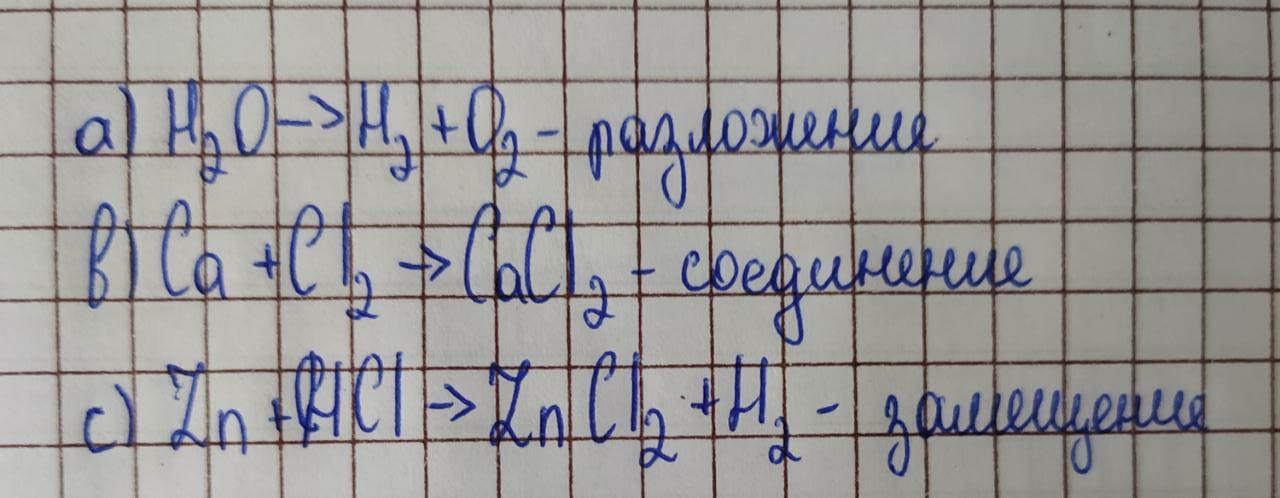 a) H₂O -> H₂ + O₂ - разложение
b) Ca + Cl₂ -> CaCl₂ - соединение
c) Zn + HCl -> ZnCl₂ + H₂ - замещение